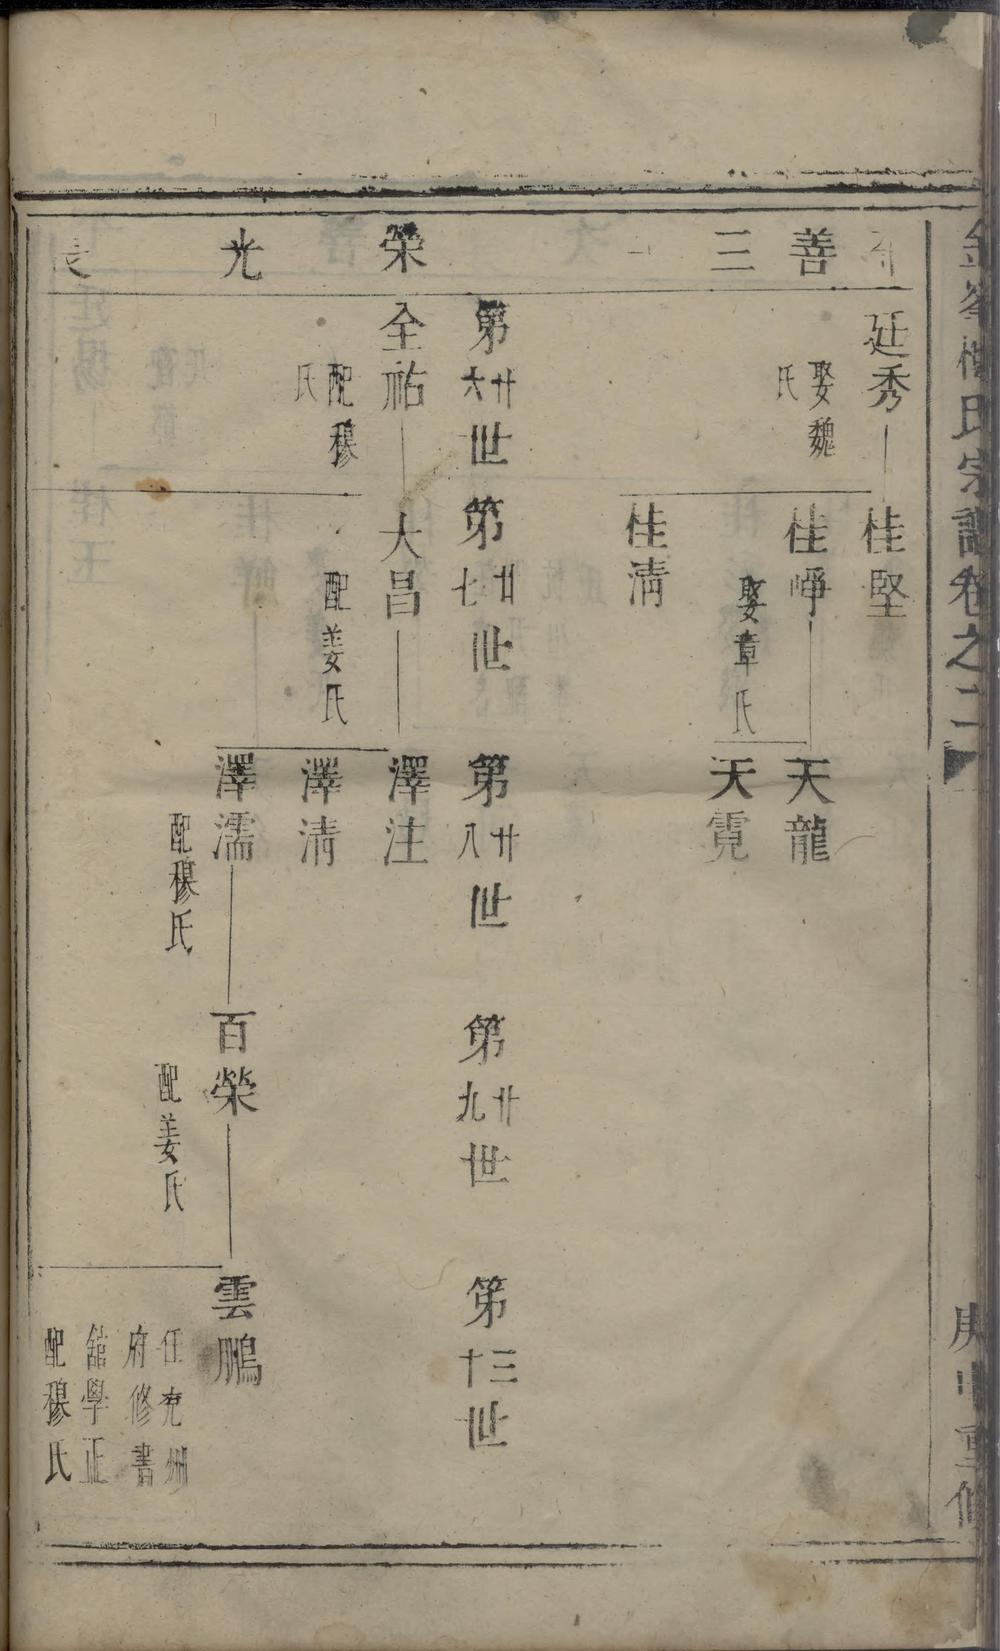 善三
廷秀
娶魏氏
桂堅
桂崢
娶章氏
桂清
天龍
天霓
第廿六世
第廿七世
第廿八世
第廿九世
第三十世
榮光
全祐
配穆氏
大昌
配姜氏
澤注
澤清
澤濡
配穆氏
百榮
配姜氏
雲鵬
任兖州
府修書
舘學正
配穆氏
氏宗譜卷之二
庚申重修